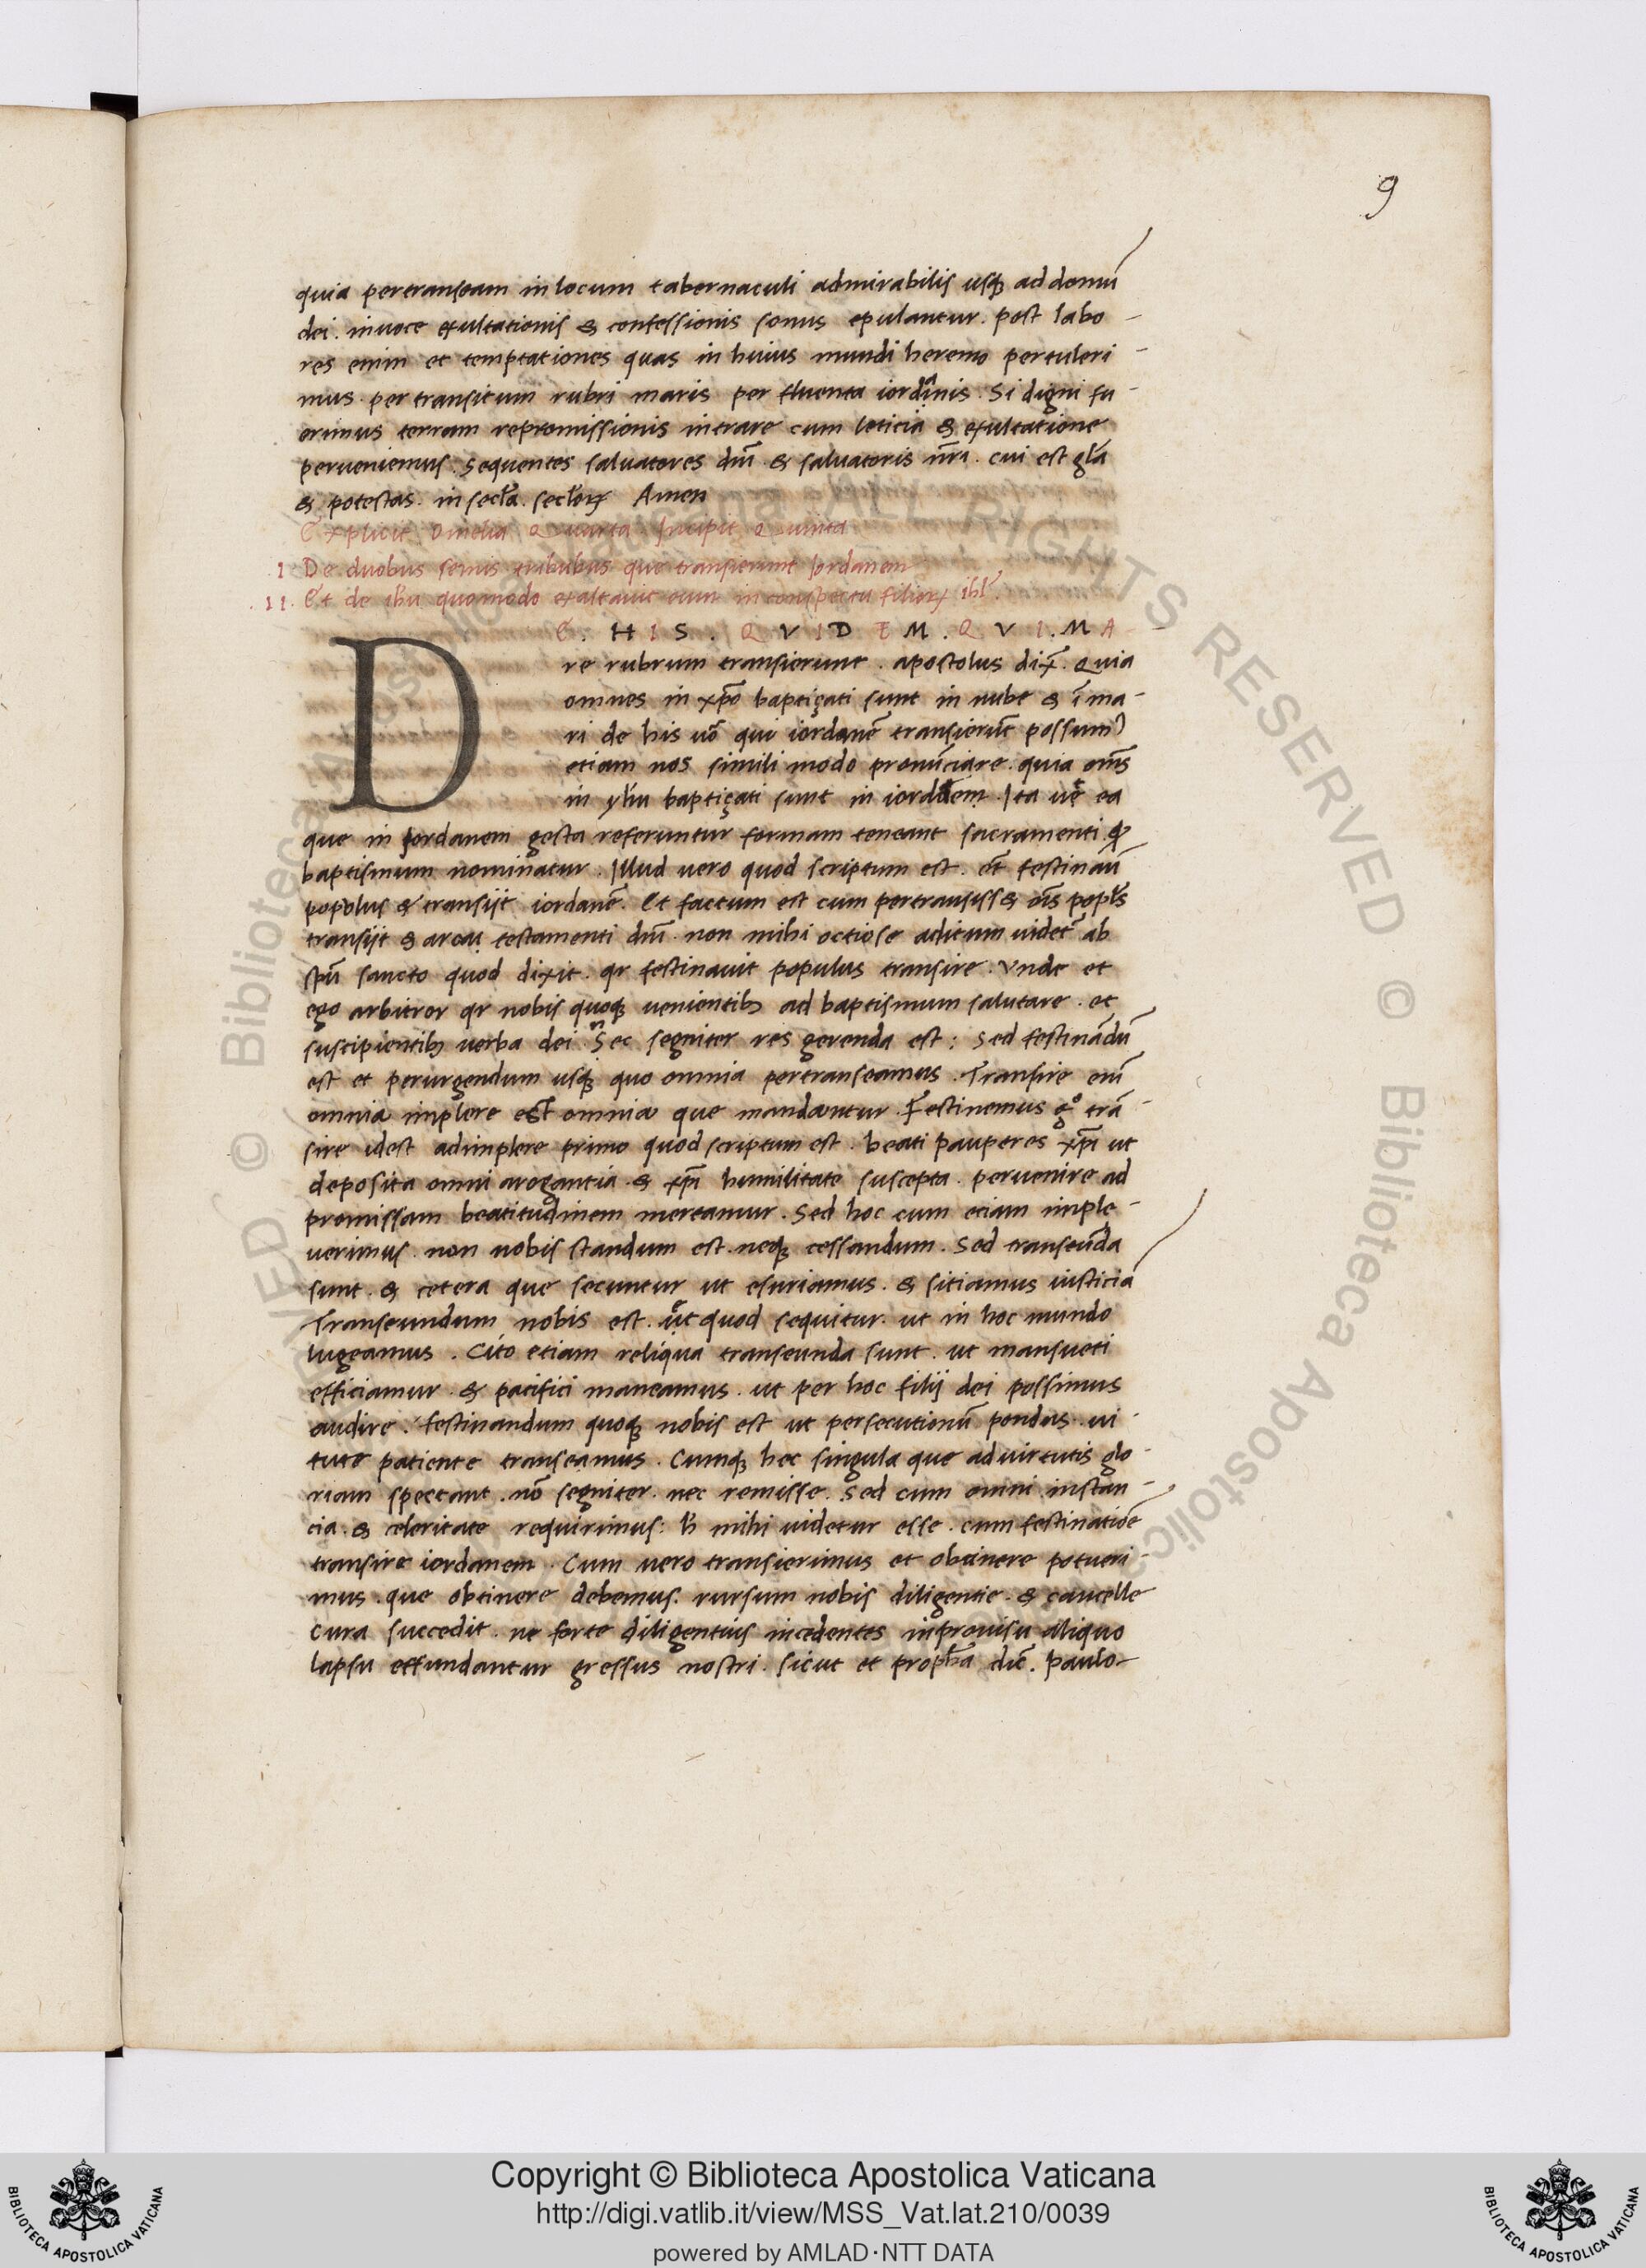 9
quia pertranseam in locum tabernaculi admirabilis usq; ad domū
dei. in uoce exultationis & confessionis sonus epulantur. post labo-
res enim et temptationes quas in huius mundi heremo pertuleri-
mus. per transitum rubri maris per fluenta iordanis. Si digni fu-
erimus terram repromissionis intrare cum leticia & exultatione
perueniemus. Sequentes saluatores dnī & saluatoris nrī. cui est glā
& potestas. in seclā. secloꝝ Amen
Explicit Omelia Quarta Incipit Quinta
I De duobus semis tribubus que transierunt Jordanem
.II. Et de ihu quomodo exaltauit eum in conspectu filioꝝ ihl.
DE. HIS. QVIDEM. QVI. MA
re rubrum transierunt. apostolus dix. Quia
omnes in xpō baptiçati sunt in nube & ī ma-
ri de his uō qui iordanē transierūt possum
etiam nos simili modo pronūciare. quia omīs
in yhu baptiçati sunt in iordem. Ita ut ea
que in Jordanem gesta referuntur formam teneant sacramenti ꝙ
baptismum nominatur. Illud uero quod scriptum est. et festinauit
populus & transijt iordanē. Et factum est cum pertransiss& oīs popls
transijt & arca testamenti dnī. non mihi octiose aditum uidet ab
spū sancto quod dixit. qr festinauit populus transire. Vnde et
ego arbitror qr nobis quoq; uenientib; ad baptismum salutare. et
suscipientib; uerba dei. nec segniter res gerenda est: Sed festinādū
est et perurgendum usq; quo omnia pertranseamus. Transire enī
omnia implere est omnia que mandantur. Festinemus gͦ trā-
sire idest adimplere primo quod scriptum est. beati pauperes xpī ut
deposita omni arogantia & xpī humilitate suscepta. peruenire ad
promissam beatitudinem mereamur. Sed hoc cum etiam imple-
uerimus. non nobis standum est. neq; cessandum. Sed transeūda
sunt. & cetera que secuntur ut esuriamus. & sitiamus iusticiā
Transeundum nobis est. et quod sequitur. ut in hoc mundo
lugeamus. Cito etiam reliqua transeunda sunt. ut mansueti
efficiamur. & pacifici maneamus. ut per hoc filij dei possimus
audire. festinandum quoq; nobis est ut persecutionū pondus. ui-
tute patiente transeamus. Cumq; hec singula que ad uirtutis glo-
riam spectant. nō segniter. nec remisse. Sed cum omni instan-
cia. & celeritate requirimus: h mihi uidetur esse. cum festinatiōe
transire iordanem. Cum uero transierimus et obtinere potueri-
mus. que obtinere debemus. rursum nobis diligentie. & caucelle
cura succedit. ne forte diligentius incedentes inprouisu aliquo
lapsu effundantur gressus nostri. sicut et prophā dič. Paulo-
Copyright © Biblioteca Apostolica Vaticana
http://digi.vatlib.it/view/MSS_Vat.lat.210/0039
powered by AMLAD·NTT DATA
BIBLIOTECA APOSTOLICA VATICANA
BIBLIOTECA APOSTOLICA VATICANA